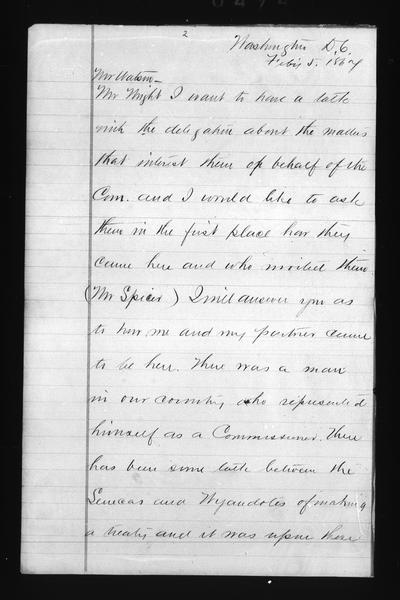 2
Washington D.C.
Feb'y 5. 1867
Mr Watson_
Mr Wright I want to have a talk
with the delegation about the matters
that interest them on behalf of the
Com. and I would like to ask
them in the first place how they
came here and who invited them
(Mr Spicer) I will answer you as
to how me and my partner came
to be here. There was a man
in our country who represented
himself as a Commissioner. There
has been some talk between the
Senecas and Wyandotes of making
a treaty and it was upon these